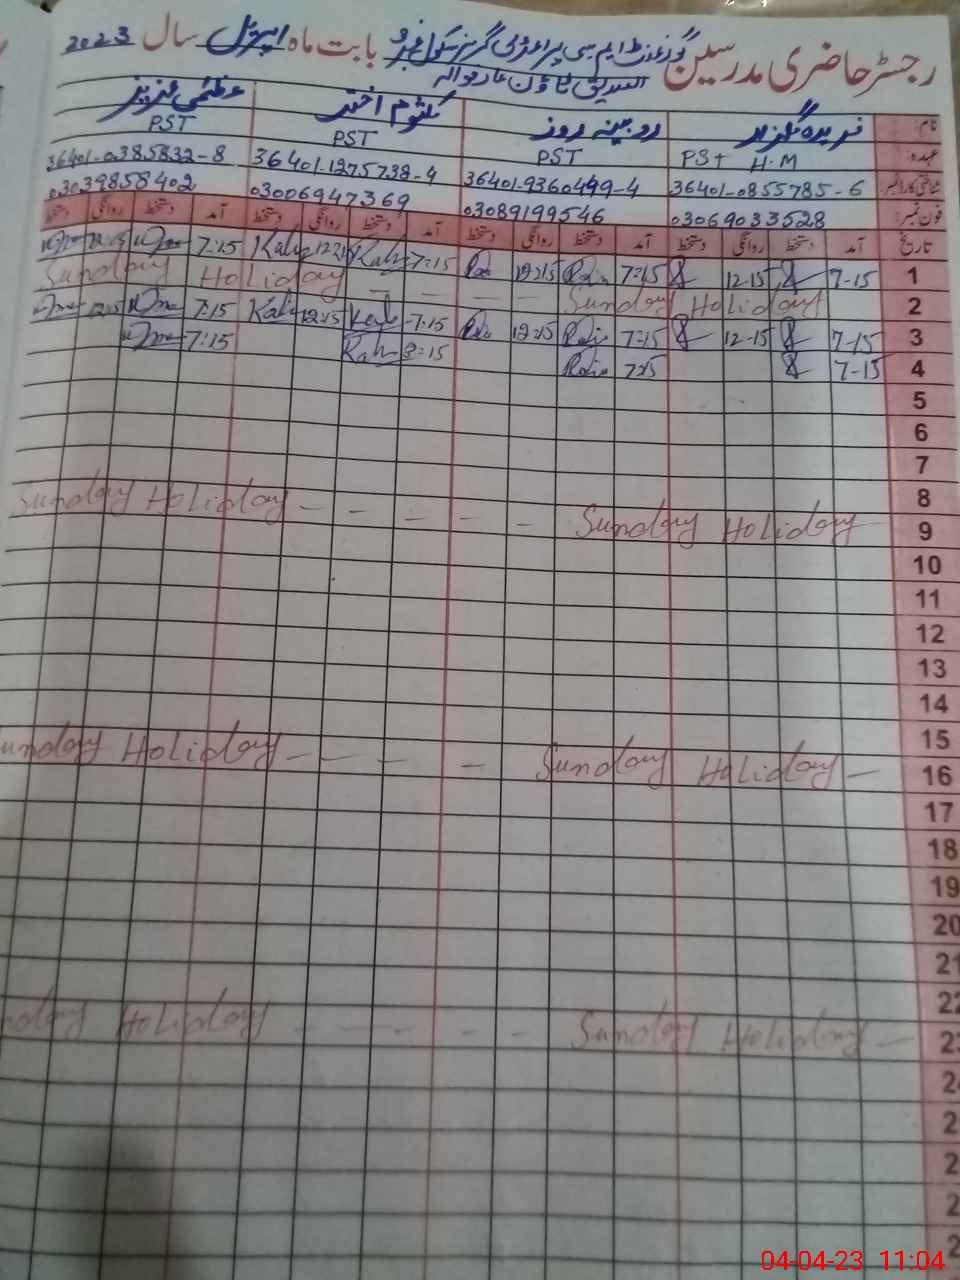 رجسٹر حاضری مدرسین گورنمنٹ ایم سی پرائمری گرلز سکول بابت ماہ اپریل سال 2023
ٹاؤن عارفوالہ
نام: فریدہ گلزار روبینہ روز کلثوم اختر عظمی عزیز
عہدہ: PST H.M PST PST PST
شناختی کارڈ نمبر: 36401-0855785-6 36401-9360499-4 36401-1275738-4 36401-0385832-8
فون نمبر: 03069033528 03089199546 03006947369 03039858402
تاریخ آمد دستخط روانگی دستخط آمد دستخط روانگی دستخط آمد دستخط روانگی دستخط آمد دستخط روانگی دستخط
1 7-15 12-15 7:15 12:15 7:15 7:15
2 Sunday Holiday - - - - Sunday Holiday
3 7-15 12-15 7:15 12:15 7:15 12:15 7:15 12:15
4 7-15 7:15 8:15 7:15
5
6
7
8
9 Sunday Holiday - - - - - Sunday Holiday
10
11
12
13
14
15
16 Sunday Holiday - - - - - Sunday Holiday -
17
18
19
20
21
22
23 Sunday Holiday - - - - - Sunday Holiday -
04-04-23 11:04